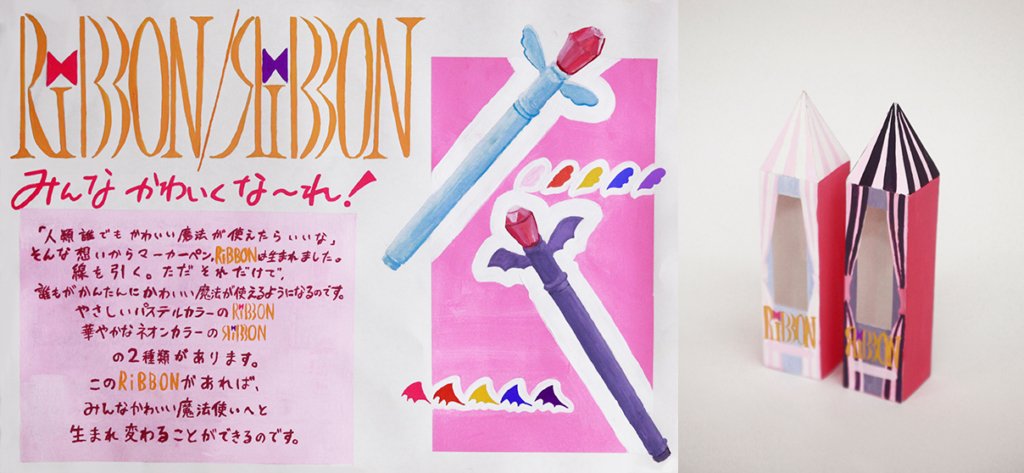 RiBBON/ЯiBBON
みんなかわいくな〜れ!
「人類誰でもかわいい魔法が使えたらいいな」
そんな想いからマーカーペン、RiBBONは生まれました。
線も引く。ただそれだけで、
誰もがかんたんにかわいい魔法が使えるようになるのです。
やさしいパステルカラーのRiBBON
華やかなネオンカラーのЯiBBON
の2種類があります。
このRiBBONがあれば、
みんなかわいい魔法使いへと
生まれ変わることができるのです。
RiBBON
ЯiBBON